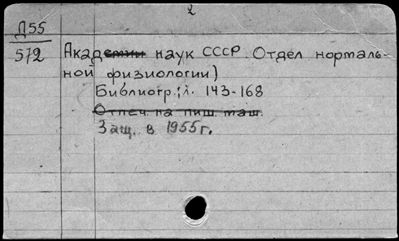 2
Д55
572
Академии наук СССР. Отдел нормаль-
ной физиологии)
Библиогр.: л. 143-168
Отпеч. на пиш. маш.
Защ. в 1955 г.